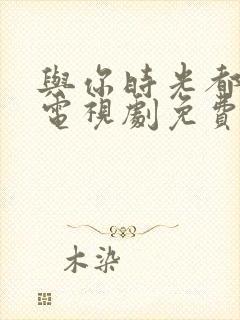 與你時光都
電視劇免費
木染